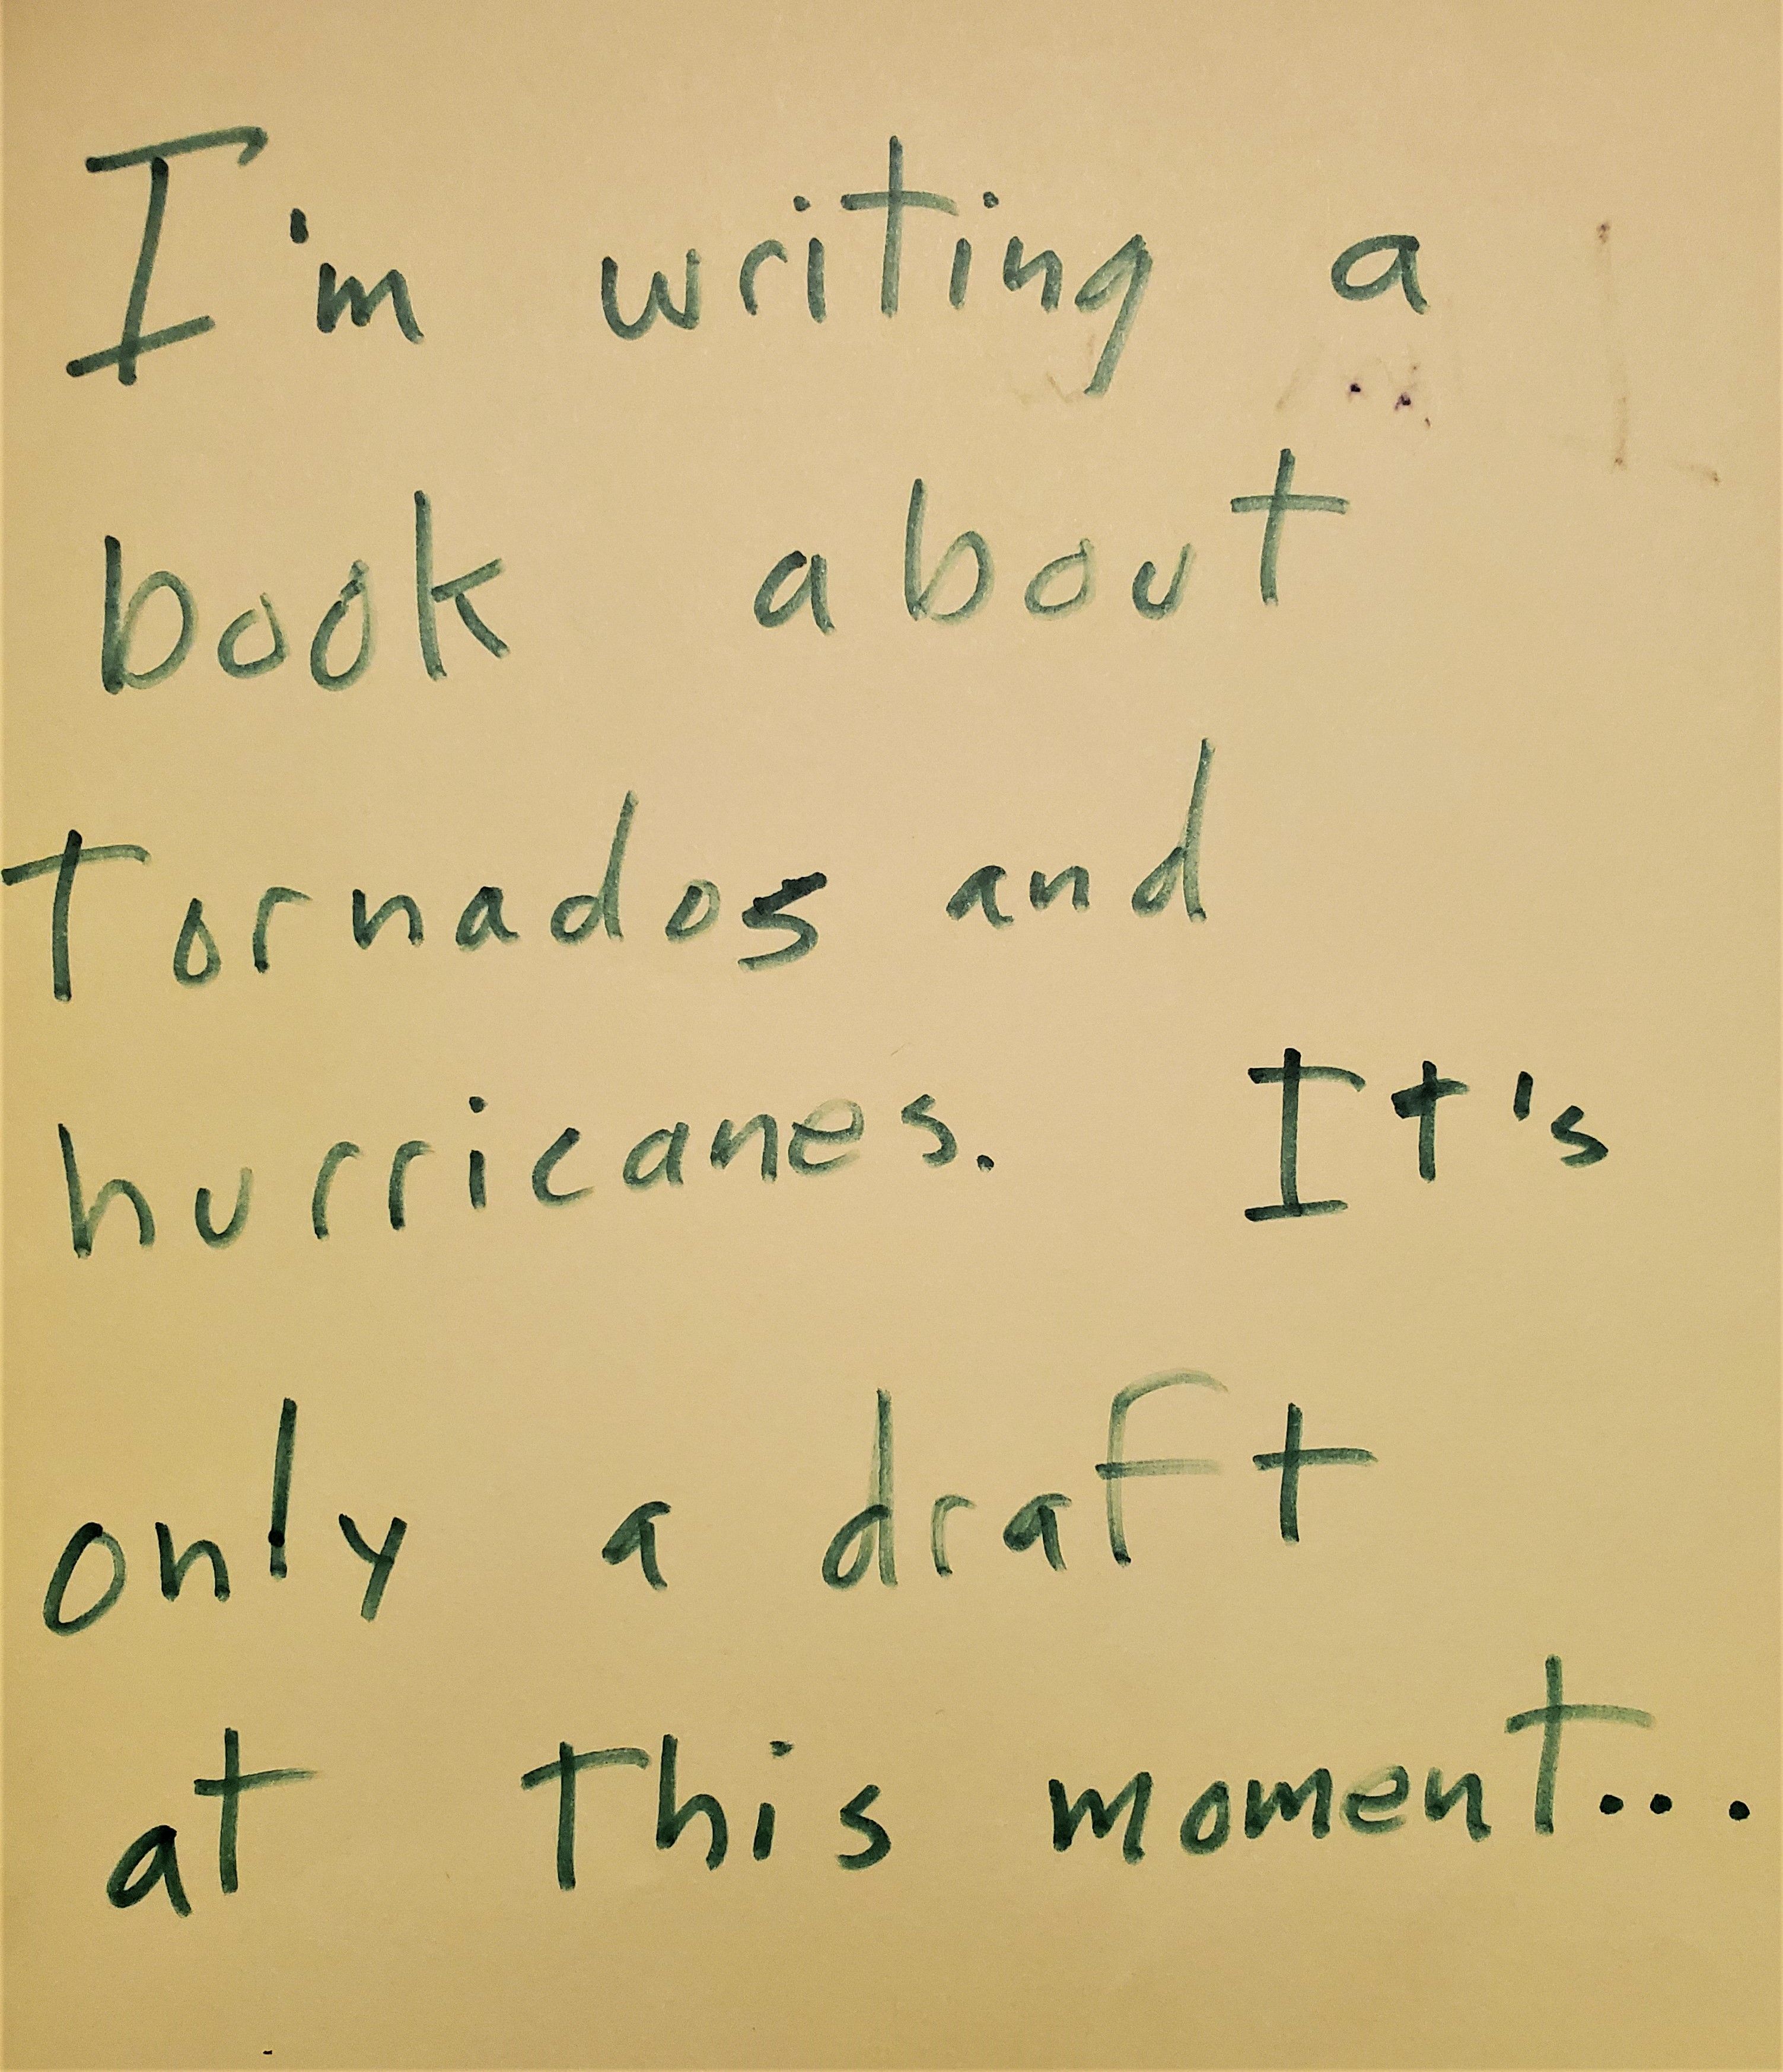 I'm writing a
book about
tornados and
hurricanes. It's
only a draft
at this moment...